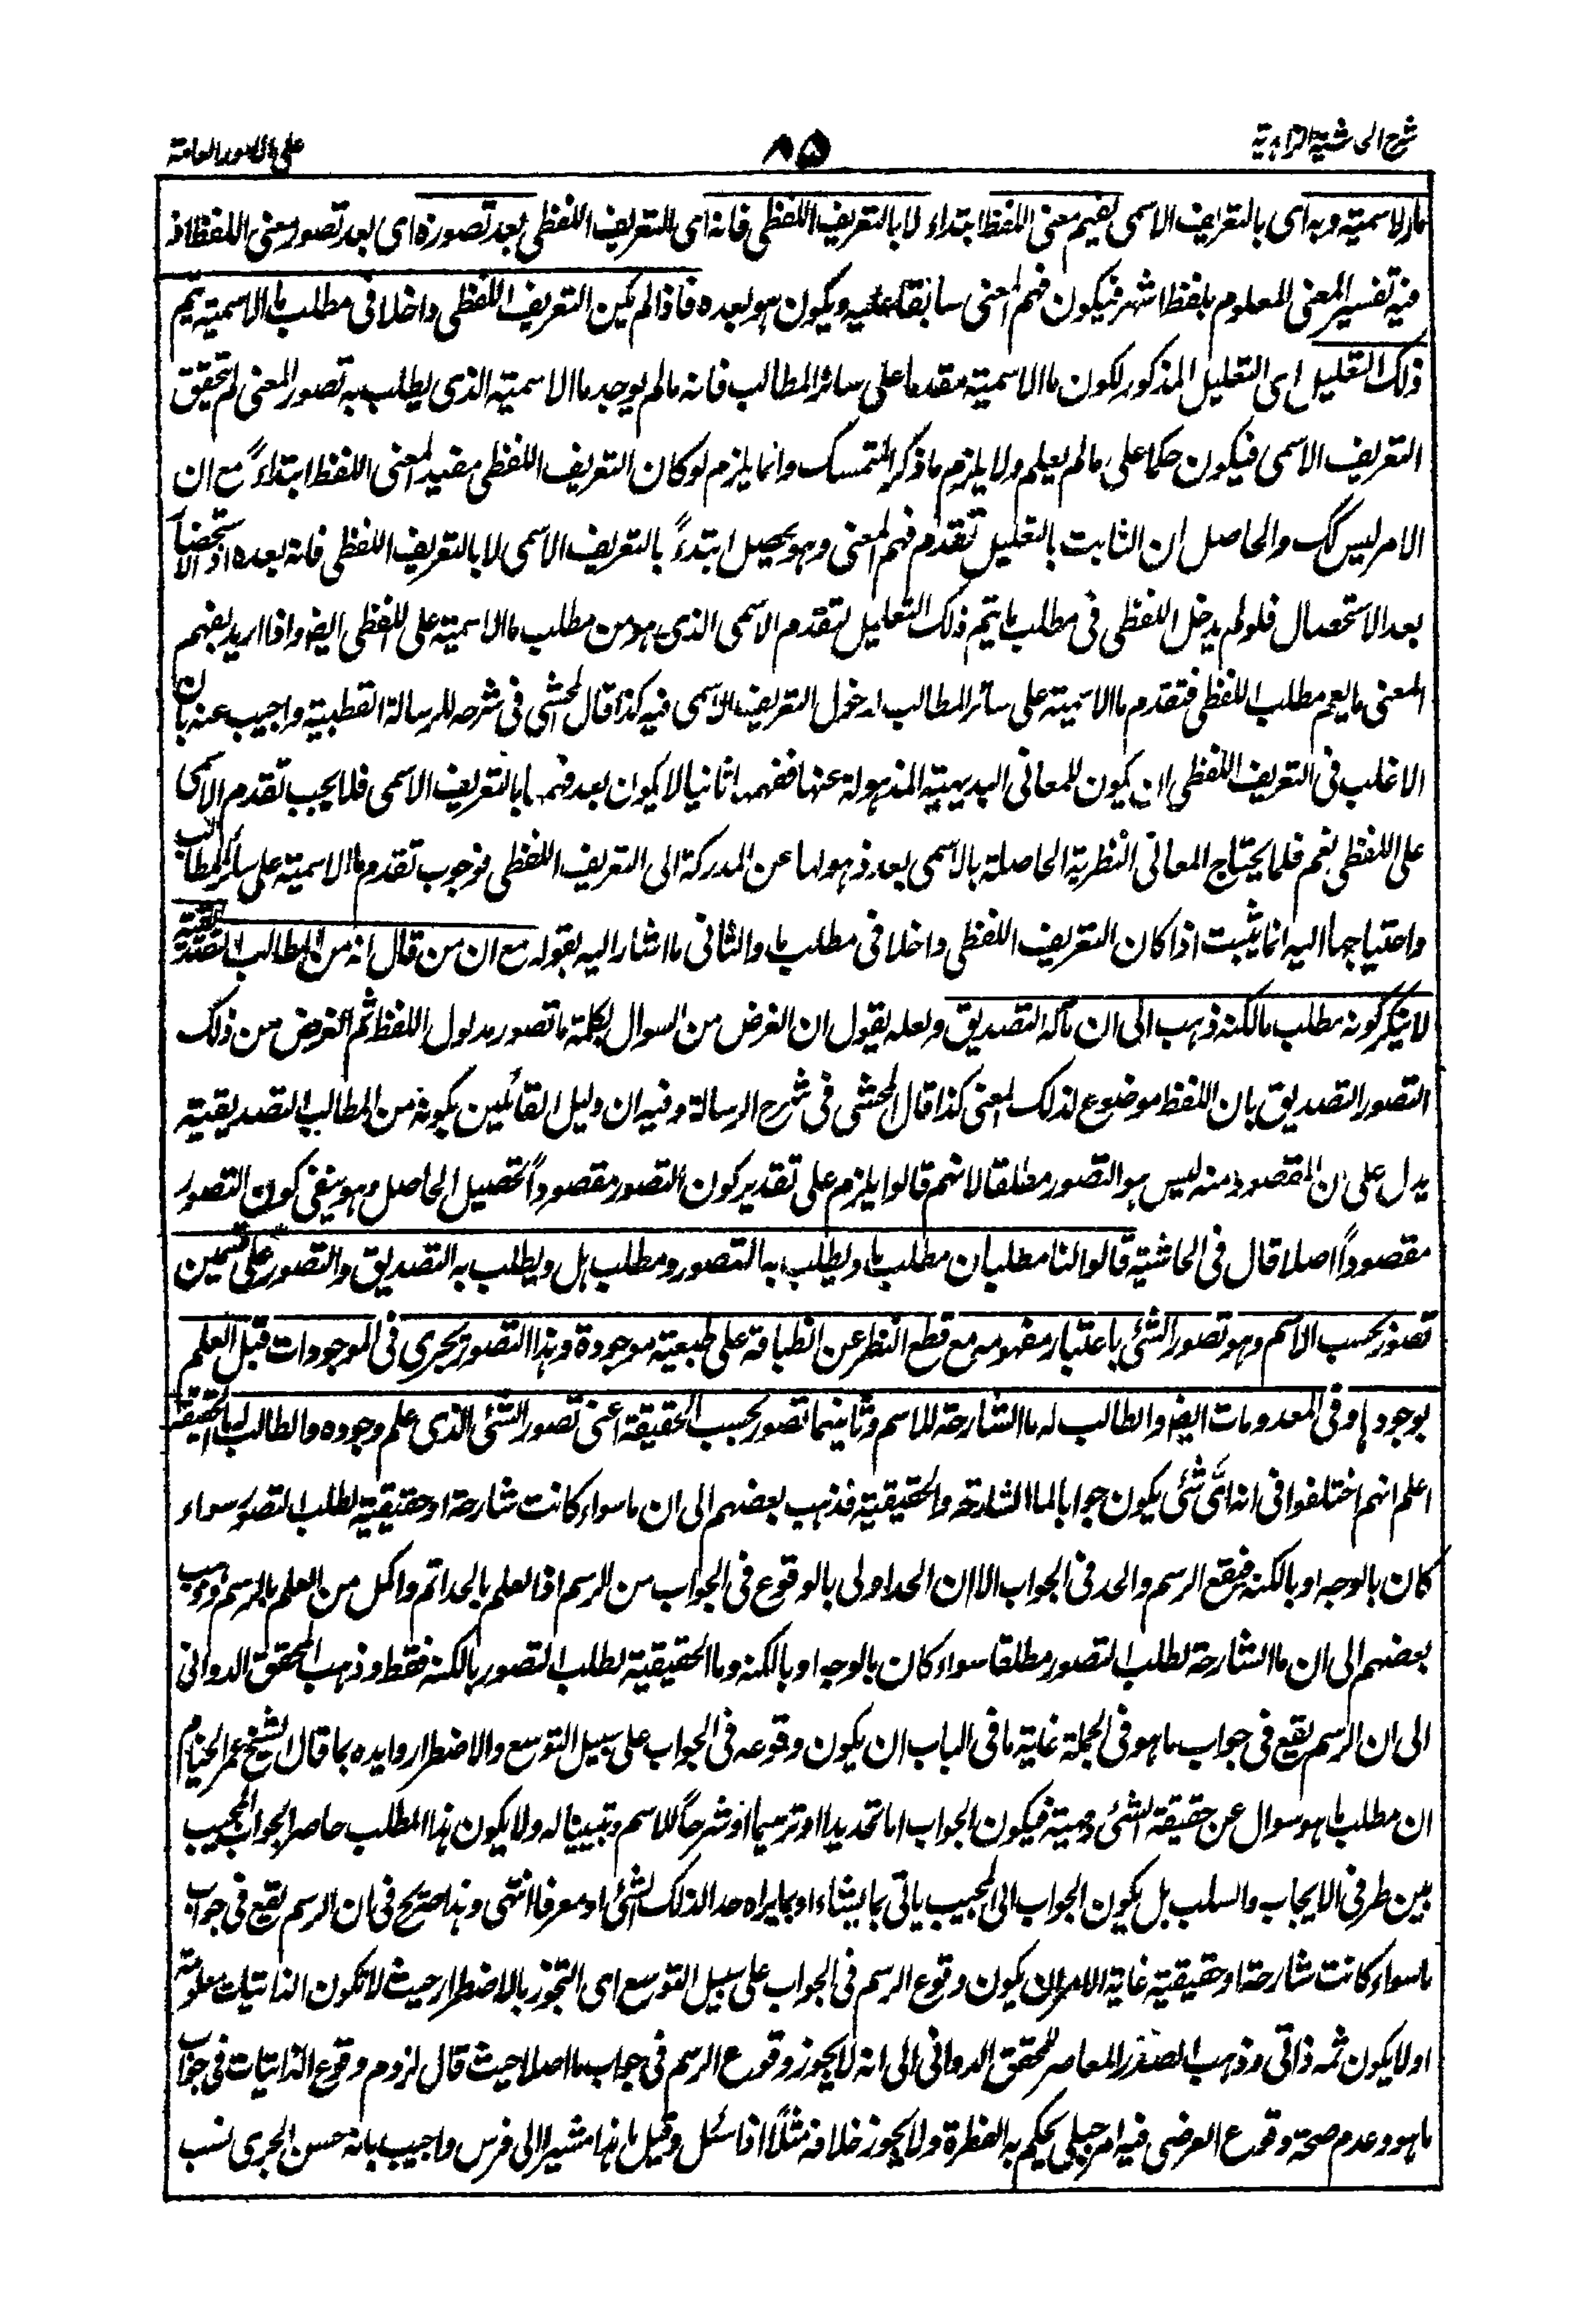 شرح الحاشية الزاهدية
٨٥
على الامور العامة
ما الاسمية وبه اى بالتعريف الاسمى يفهم معنى اللفظ ابتداء لا بالتعريف اللفظى فانه اى التعريف اللفظى بعد تصوره اى بعد تصور معنى اللفظ اذ
فيه تفسير المعنى المعلوم بلفظ اشهر فيكون فهم المعنى سابقا عليه ويكون هو بعده فاذا لم يكن التعريف اللفظى داخلا فى مطلب ما الاسمية يتم
ذلك التعليل اى التعليل المذكور لكون ما الاسمية مقدما على سائر المطالب فانه ما لم يوجد ما الاسمية الذى يطلب به تصور المعنى لم يتحقق
التعريف الاسمى فيكون حكما على ما لم يعلم ولا يلزم ما ذكر المتمسك وانما يلزم لو كان التعريف اللفظى مفيد المعنى اللفظ ابتداءً مع ان
الامر ليس كك والحاصل ان الثابت بالتعليل تقدم فهم المعنى وهو يحصل ابتدءً بالتعريف الاسمى لا بالتعريف اللفظى فانه بعده اذ الاستحضار
بعد الاستحصال فلو لم يدخل اللفظى فى مطلب ما يتم ذلك التعليل لتقدم الاسمى الذى هو من مطلب ما الاسمية على اللفظى ايضا واذا اريد بفهم
المعنى ما يعم مطلب اللفظى فتقدم ما الاسمية على سائر المطالب لدخول التعريف الاسمى فيه كذا قال المحشى فى شرحه للرسالة القطبية واجيب عنه بان
الاغلب فى التعريف اللفظى ان يكون للمعانى البديهية المذهولة عنها ففهمها ثانيا لا يكون بعد فهمها بالتعريف الاسمى فلا يجب تقدم الاسمى
على اللفظى نعم قلما يحتاج المعانى النظرية الحاصلة بالاسمى بعد ذهولها عن المدركة الى التعريف اللفظى فوجوب تقدم ما الاسمية على سائر المطالب
واحتياجها اليه انما يثبت اذا كان التعريف اللفظى داخلا فى مطلب ما والثانى ما اشار اليه بقوله مع ان من قال انه من المطالب التصديقية
لا ينكر كونه مطلب ما لكنه ذهب الى ان مآله التصديق ولعله يقول ان الغرض من السوال بكلمة ما تصور مدلول اللفظ ثم الغرض من ذلك
التصور التصديق بان اللفظ موضوع لذلك المعنى كذا قال المحشى فى شرح الرسالة وفيه ان دليل القائلين بكونه من المطالب التصديقية
يدل على ان المقصود منه ليس هو التصور مطلقا لانهم قالوا يلزم على تقدير كون التصور مقصوداً تحصيل الحاصل وهو ينفى كون التصور
مقصوداً اصلا قال فى الحاشية قالوا لنا مطلبان مطلب ما ويطلب به التصور ومطلب هل ويطلب به التصديق والتصور على قسمين
تصور بحسب الاسم وهو تصور الشئ باعتبار مفهومه مع قطع النظر عن انطباقه على طبيعية موجودة وهذا التصور يجرى فى الموجودات قبل العلم
بوجودها وفى المعدومات ايضا والطالب له ما الشارحة للاسم وثانيهما تصور بحسب الحقيقة اعنى تصور الشئ الذى علم وجوده والطالب له ما الحقيقية
اعلم انهم اختلفوا فى انه اى شئ يكون جوابا لما الشارحة والحقيقية فذهب بعضهم الى ان ما سواء كانت شارحة او حقيقية لطلب التصور سواء
كان بالوجه او بالكنه فيقع الرسم والحد فى الجواب الا ان الحد اولى بالوقوع فى الجواب من الرسم اذ العلم بالحد اتم واكمل من العلم بالرسم وذهب
بعضهم الى ان ما الشارحة لطلب التصور مطلقا سواء كان بالوجه او بالكنه وما الحقيقية لطلب التصور بالكنه فقط وذهب المحقق الدوانى
الى ان الرسم يقع فى جواب ما هو فى الجملة غاية ما فى الباب ان يكون وقوعه فى الجواب على سبيل التوسع والاضطرار وايده بما قال الشيخ عمر الخيام
ان مطلب ما هو سوال عن حقيقة الشئ ومهية فيكون الجواب اما تحديدا او ترسيما او شرحاً للاسم وتبيينا له ولا يكون هذا المطلب حاصر الجواب المجيب
بين طرفى الايجاب والسلب بل يكون الجواب الى المجيب ياتى بما يشاء او بما يراه حدا لذلك الشئ او معرفا انتهى وهذا صريح فى ان الرسم يقع فى جواب
ما سواء كانت شارحة او حقيقية غاية الامر ان يكون وقوع الرسم فى الجواب على سبيل التوسع اى التجوز بالاضطرار حيث لا تكون الذاتيات معلومة
او لا يكون ثمه ذاتى وذهب الصدر المعاصر للمحقق الدوانى الى انه لا يجوز وقوع الرسم فى جواب ما اصلا حيث قال لزوم وقوع الذاتيات فى جواب
ما هو وعدم صحة وقوع العرضى فيه امر جبلى يحكم به الفطرة ولا يجوز خلافه مثلاً اذا سئل وقيل ما هذا مشيرا الى فرس واجيب بانه حسن الجرى نسب